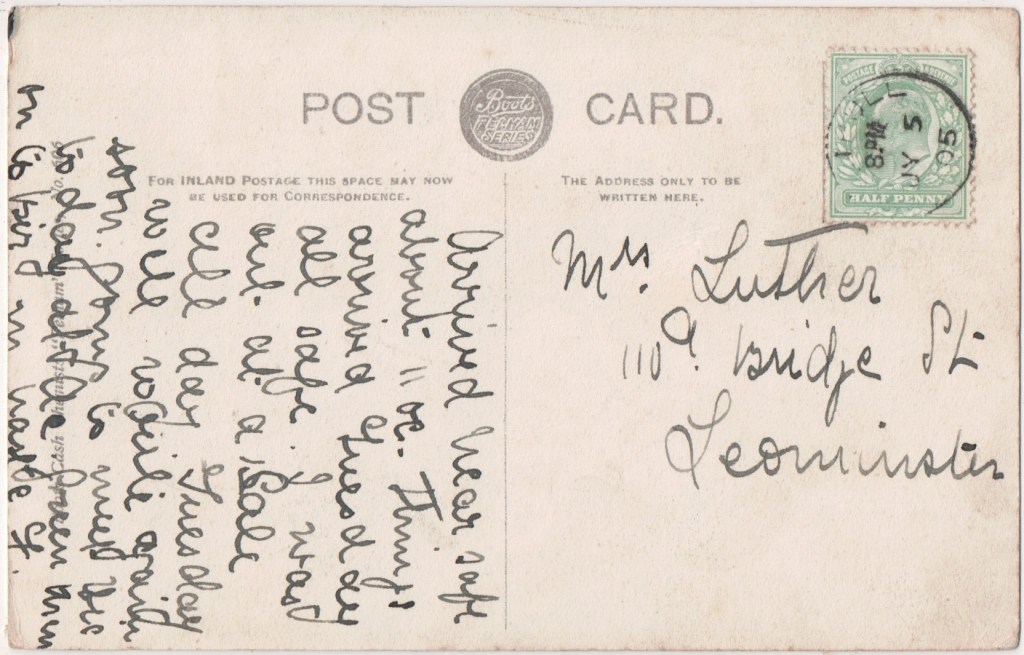 POST CARD.
Boots
PELHAM
SERIES
FOR INLAND POSTAGE THIS SPACE MAY NOW
BE USED FOR CORRESPONDENCE.
THE ADDRESS ONLY TO BE
WRITTEN HERE.
POSTAGE REVENUE
HALF PENNY
8.PM
JY 5
05
Mrs. Luther
110a. Bridge St
Leominster
Arrived hear safe
about 11 oc. Things
arrived Tuesday
all safe. I was
out at a Sale
all day Tuesday
will write again
soon. going to meet
to day
in to
in haste
Cash Chemists